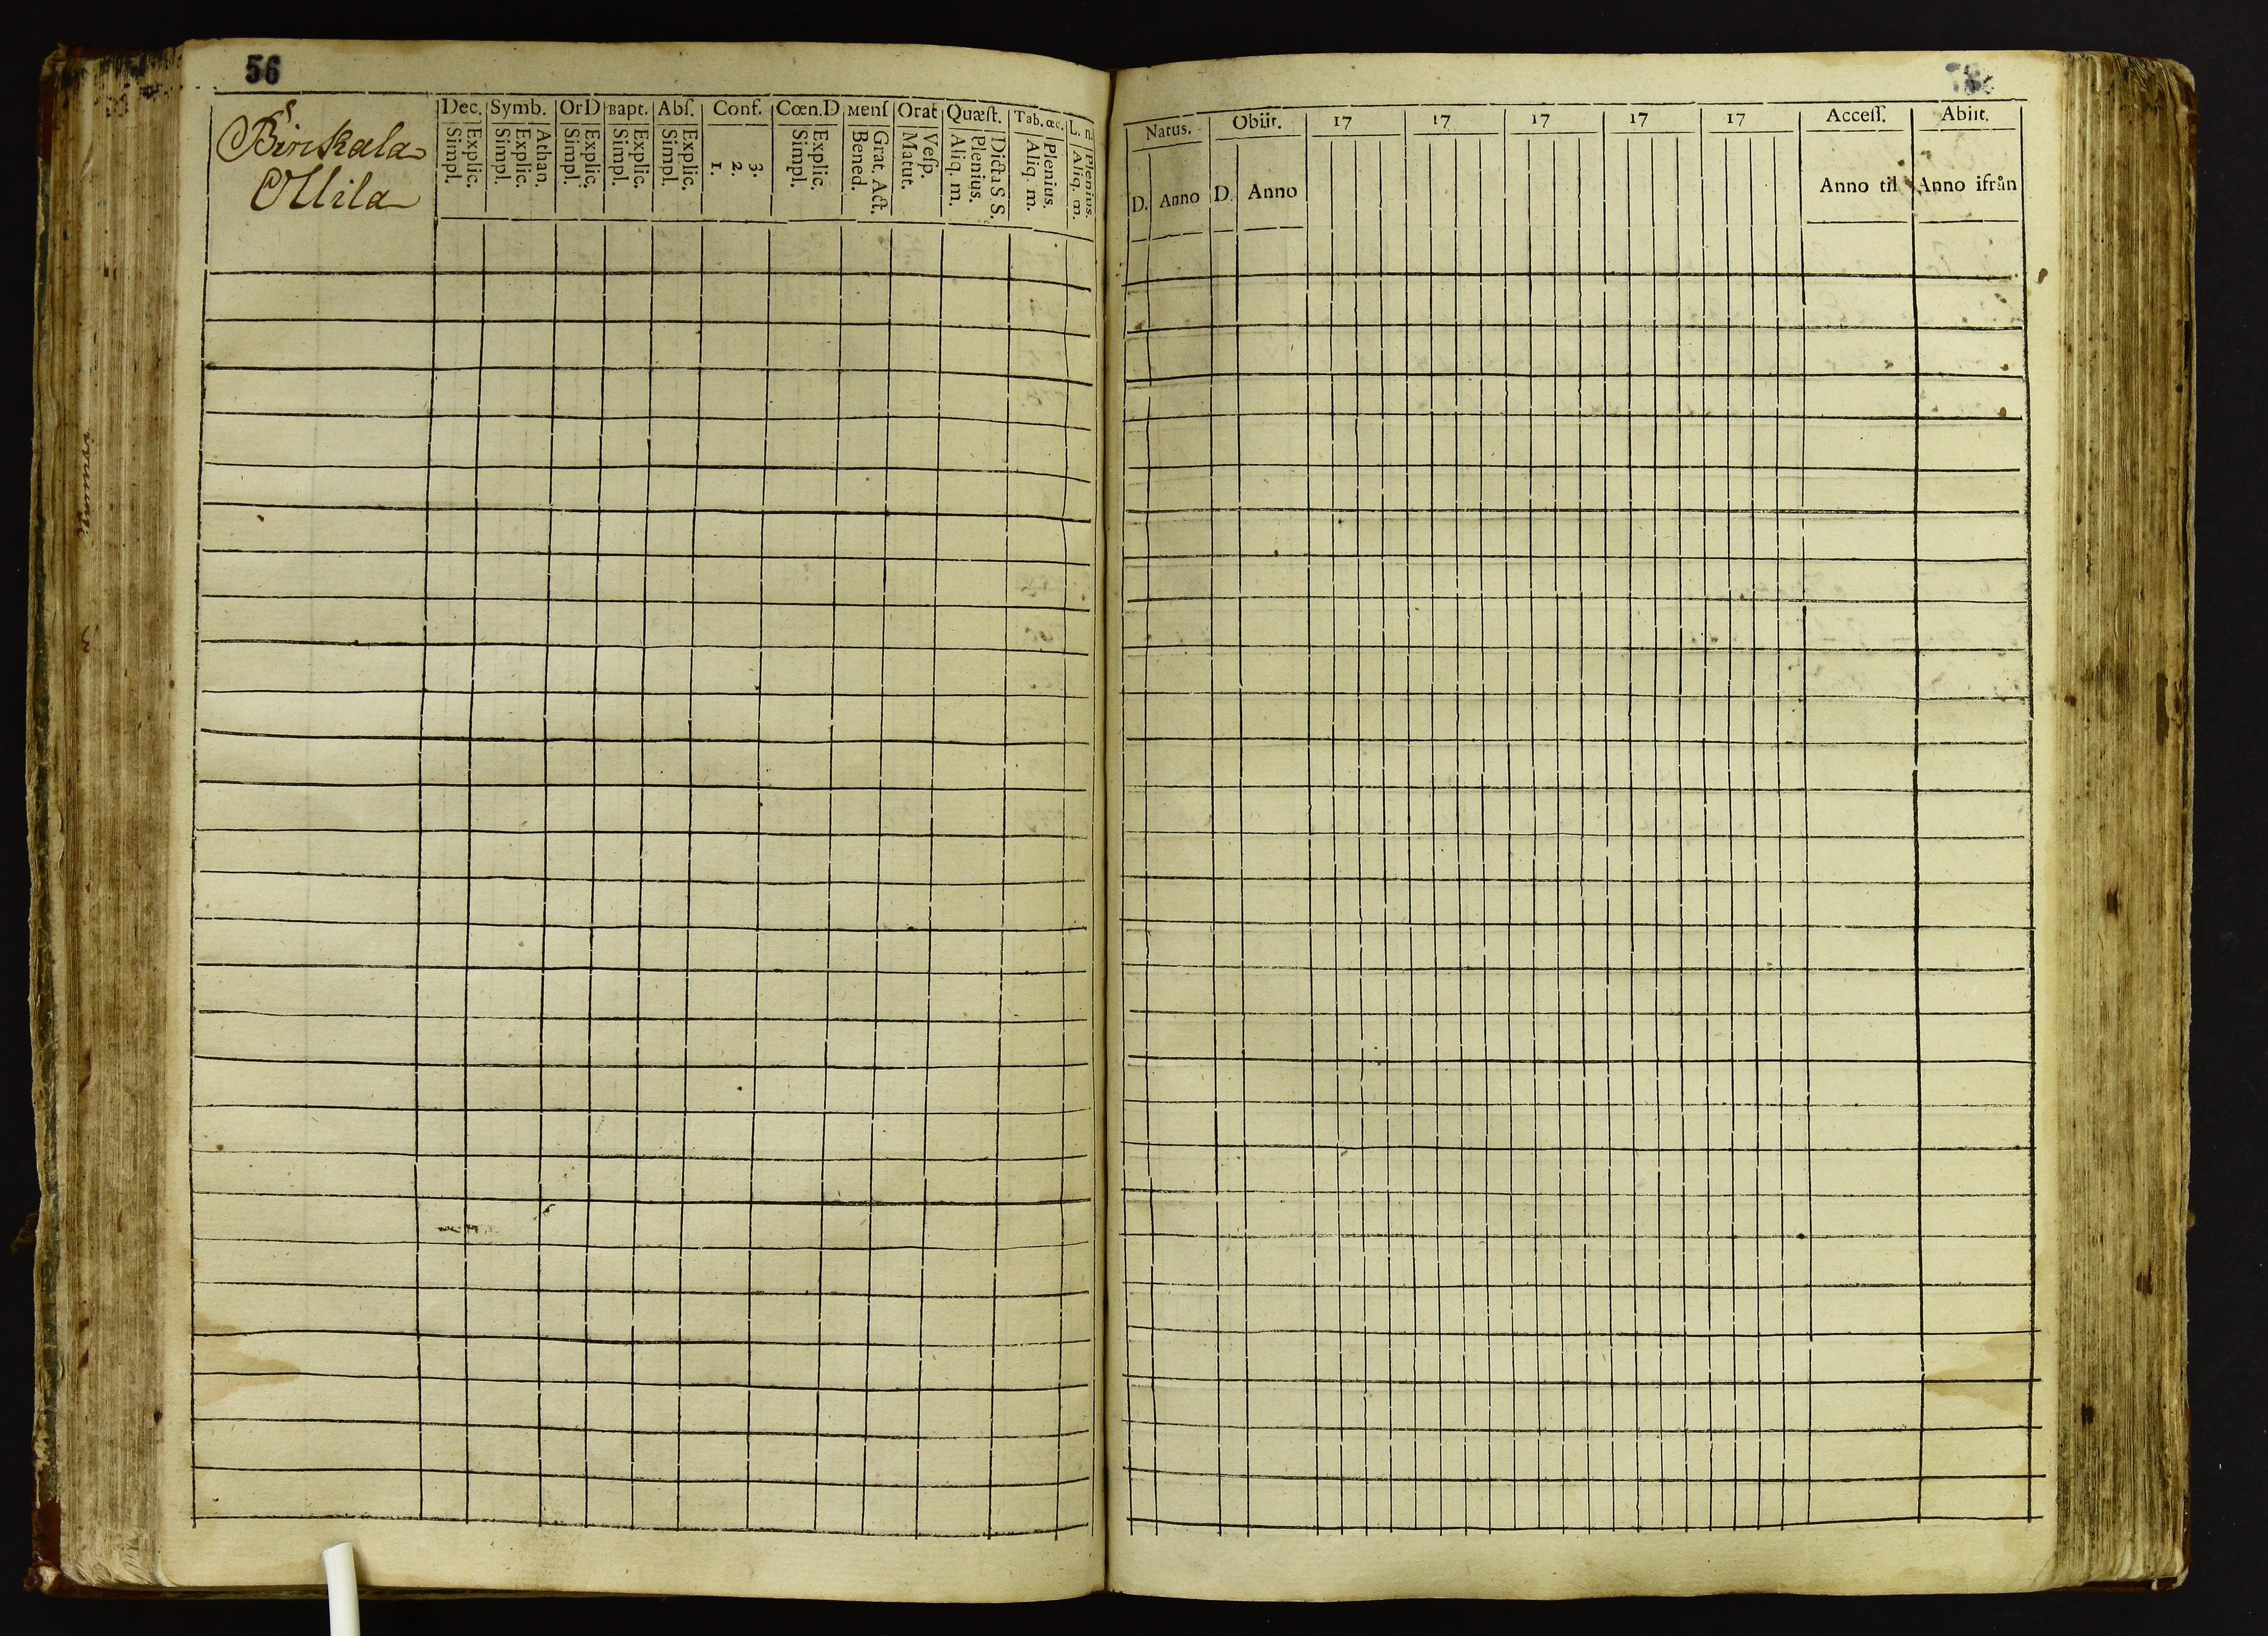 56
Birckala
Ollila
Dec. Symb. OrD Bapt. Abſ. Conf. Cœn.D Menſ Orat Quæſt. Tab. œc. L. n.
Simpl. Explic. Simpl. Explic. Athan. Simpl. Explic. Simpl. Explic. Simpl. Explic. 1. 2. 3. Simpl. Explic. Bened. Grat. Act. Matut. Veſp. Aliq. m. Plenius. Dicta S S. Aliq. m. Plenius. Aliq. m. Plenius.
Natus. Obiit. 17 17 17 17 17 Acceſſ. Abiit.
D. Anno D. Anno Anno til Anno ifrån